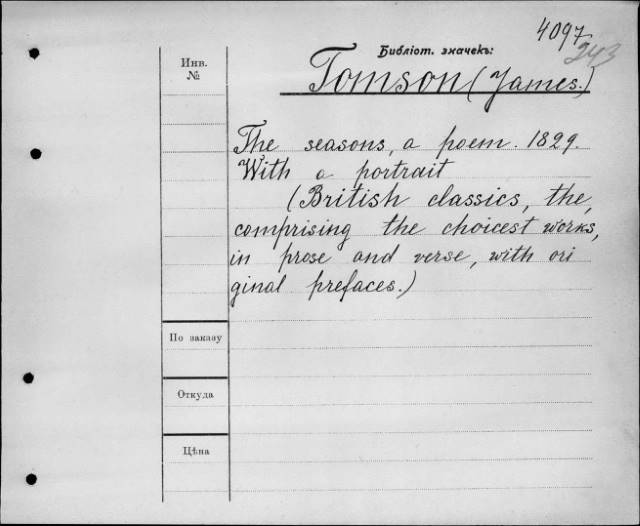 4097
243
Библіот. значекъ:
Инв.
№
Tomson (James.)
The seasons, a poem. 1829.
With a portrait
(British classics, the,
comprising the choicest works,
in prose and verse, with ori
ginal prefaces.)
По заказу
Откуда
Цѣна